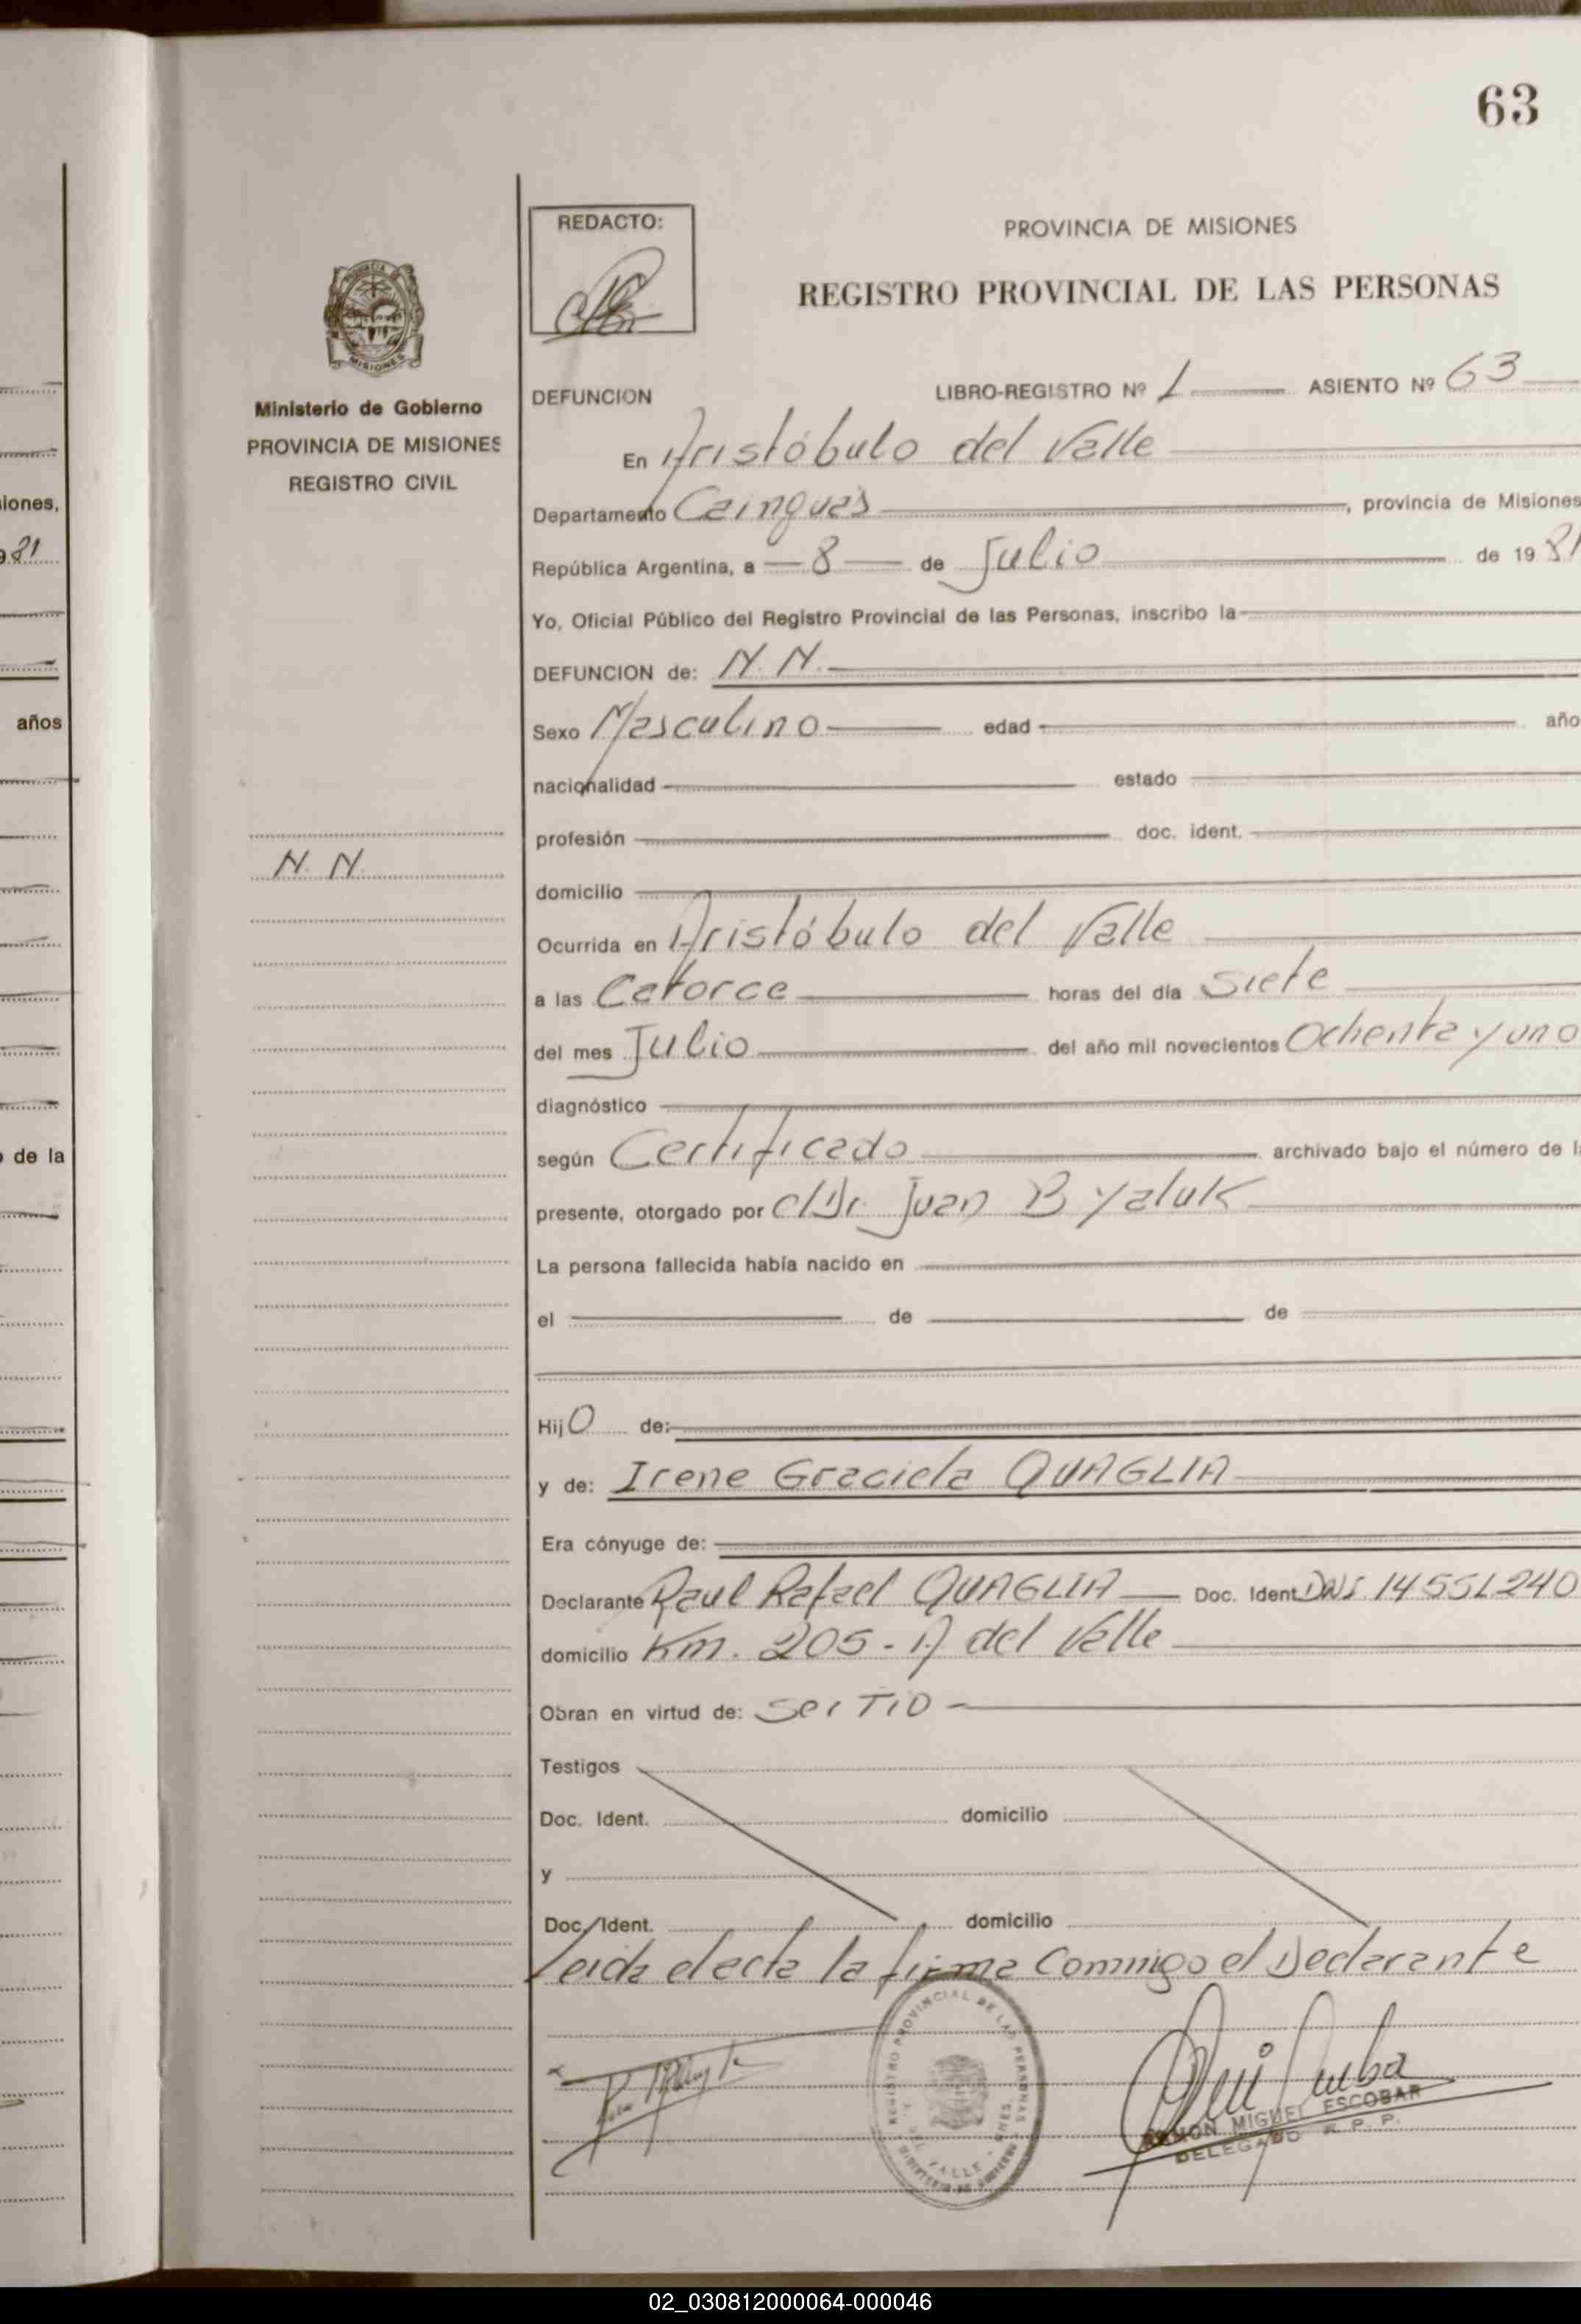 63
REDACTO:
PROVINCIA DE MISIONES
REGISTRO PROVINCIAL DE LAS PERSONAS
MISIONES
Ministerio de Gobierno
PROVINCIA DE MISIONES
REGISTRO CIVIL
DEFUNCION LIBRO-REGISTRO Nº 1 ASIENTO Nº 63
En Aristóbulo del Valle
Departamento Cainguás, provincia de Misiones
República Argentina, a 8 de Julio de 1981
Yo, Oficial Público del Registro Provincial de las Personas, inscribo la
DEFUNCION de: N. N.
Sexo Masculino edad año
nacionalidad estado
profesión doc. ident.
N. N.
domicilio
Ocurrida en Aristóbulo del Valle
a las Catorce horas del día Siete
del mes Julio del año mil novecientos Ochenta y uno
diagnóstico
según Certificado archivado bajo el número de l
presente, otorgado por el Dr. Juan B Yaluk
La persona fallecida había nacido en
el de de
Hijo de:
y de: Irene Graciela QUAGLIA
Era cónyuge de:
Declarante Raul Rafael QUAGLIA Doc. Ident. DNI. 14 551 240
domicilio Km. 205 - A del Valle
Obran en virtud de: Ser TIO -
Testigos
Doc. Ident. domicilio
y
Doc. Ident. domicilio
Leida el acta la firma Conmigo el Declarante
REGISTRO PROVINCIAL DE LAS PERSONAS
DEL VALLE - MNES.
RAMON MIGUEL ESCOBAR
DELEGADO R. P. P.
iones,
981
años
de la
02_030812000064-000046